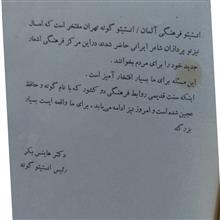 انستیتو فرهنگی آلمان / انستیتو گوته تهران مفتخر است که امسال
نیز نو پردازان شاعر ایرانی حاضر شدند در این مرکز فرهنگی اشعار
جدید خود را برای مردم بخوانند .
این مسئله برای ما بسیار افتخار آمیز است .
اینکه سنت قدیمی روابط فرهنگی دو کشور که با نام گوته و حافظ
عجین شده است و امروز نیز ادامه می‌یابد ، برای ما واقعه ایست بسیار
بزرگ
دکتر هاینس بکر
رئیس انستیتو گوته